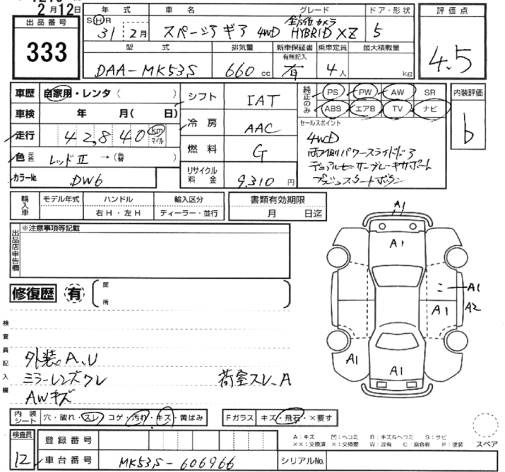 2月12日
出品番号
333
年式
車名
グレード
ドア・形状
評価点
S H R
31 2月
スペーシア ギア 4WD
全方位カメラ
HYBRID XZ
5
4.5
型式
排気量
新車保証書
有無記入
乗車定員
最大積載量
DAA-MK53S
660cc
有
4人
kg
車歴 自家用・レンタ( )
シフト
IAT
純正のみ
PS PW AW SR
ABS エアB TV ナビ
内装評価
b
車検 年 月( 日)
冷房
AAC
走行 42,840 km マイル
セールスポイント
4WD
両側パワースライドドア
デュアルセンサーブレーキサポート
プッシュスタートボタン
色 レッドⅡ →(替 )
燃料
G
カラーNo. DW6
リサイクル料金
9,310円
輸入車
モデル年式
ハンドル
輸入区分
右H・左H
ディーラー・並行
書類有効期限
月 日迄
出品店申告欄
※注意事項等記載
修復歴 有
箇所
検査員記入欄
外装A、U
ミラーレンズワレ
AWキズ
荷室スレ、A
A1
A1
A1
A1
A2
A1
A1
A1
内装シート
穴・破れ・スレ コゲ・汚れ・キズ・黄ばみ
Fガラス キズ・飛石・×要す
スペア
検査員
12
登録番号
車台番号
MK53S-606966
シリアルNo.
A:キズ